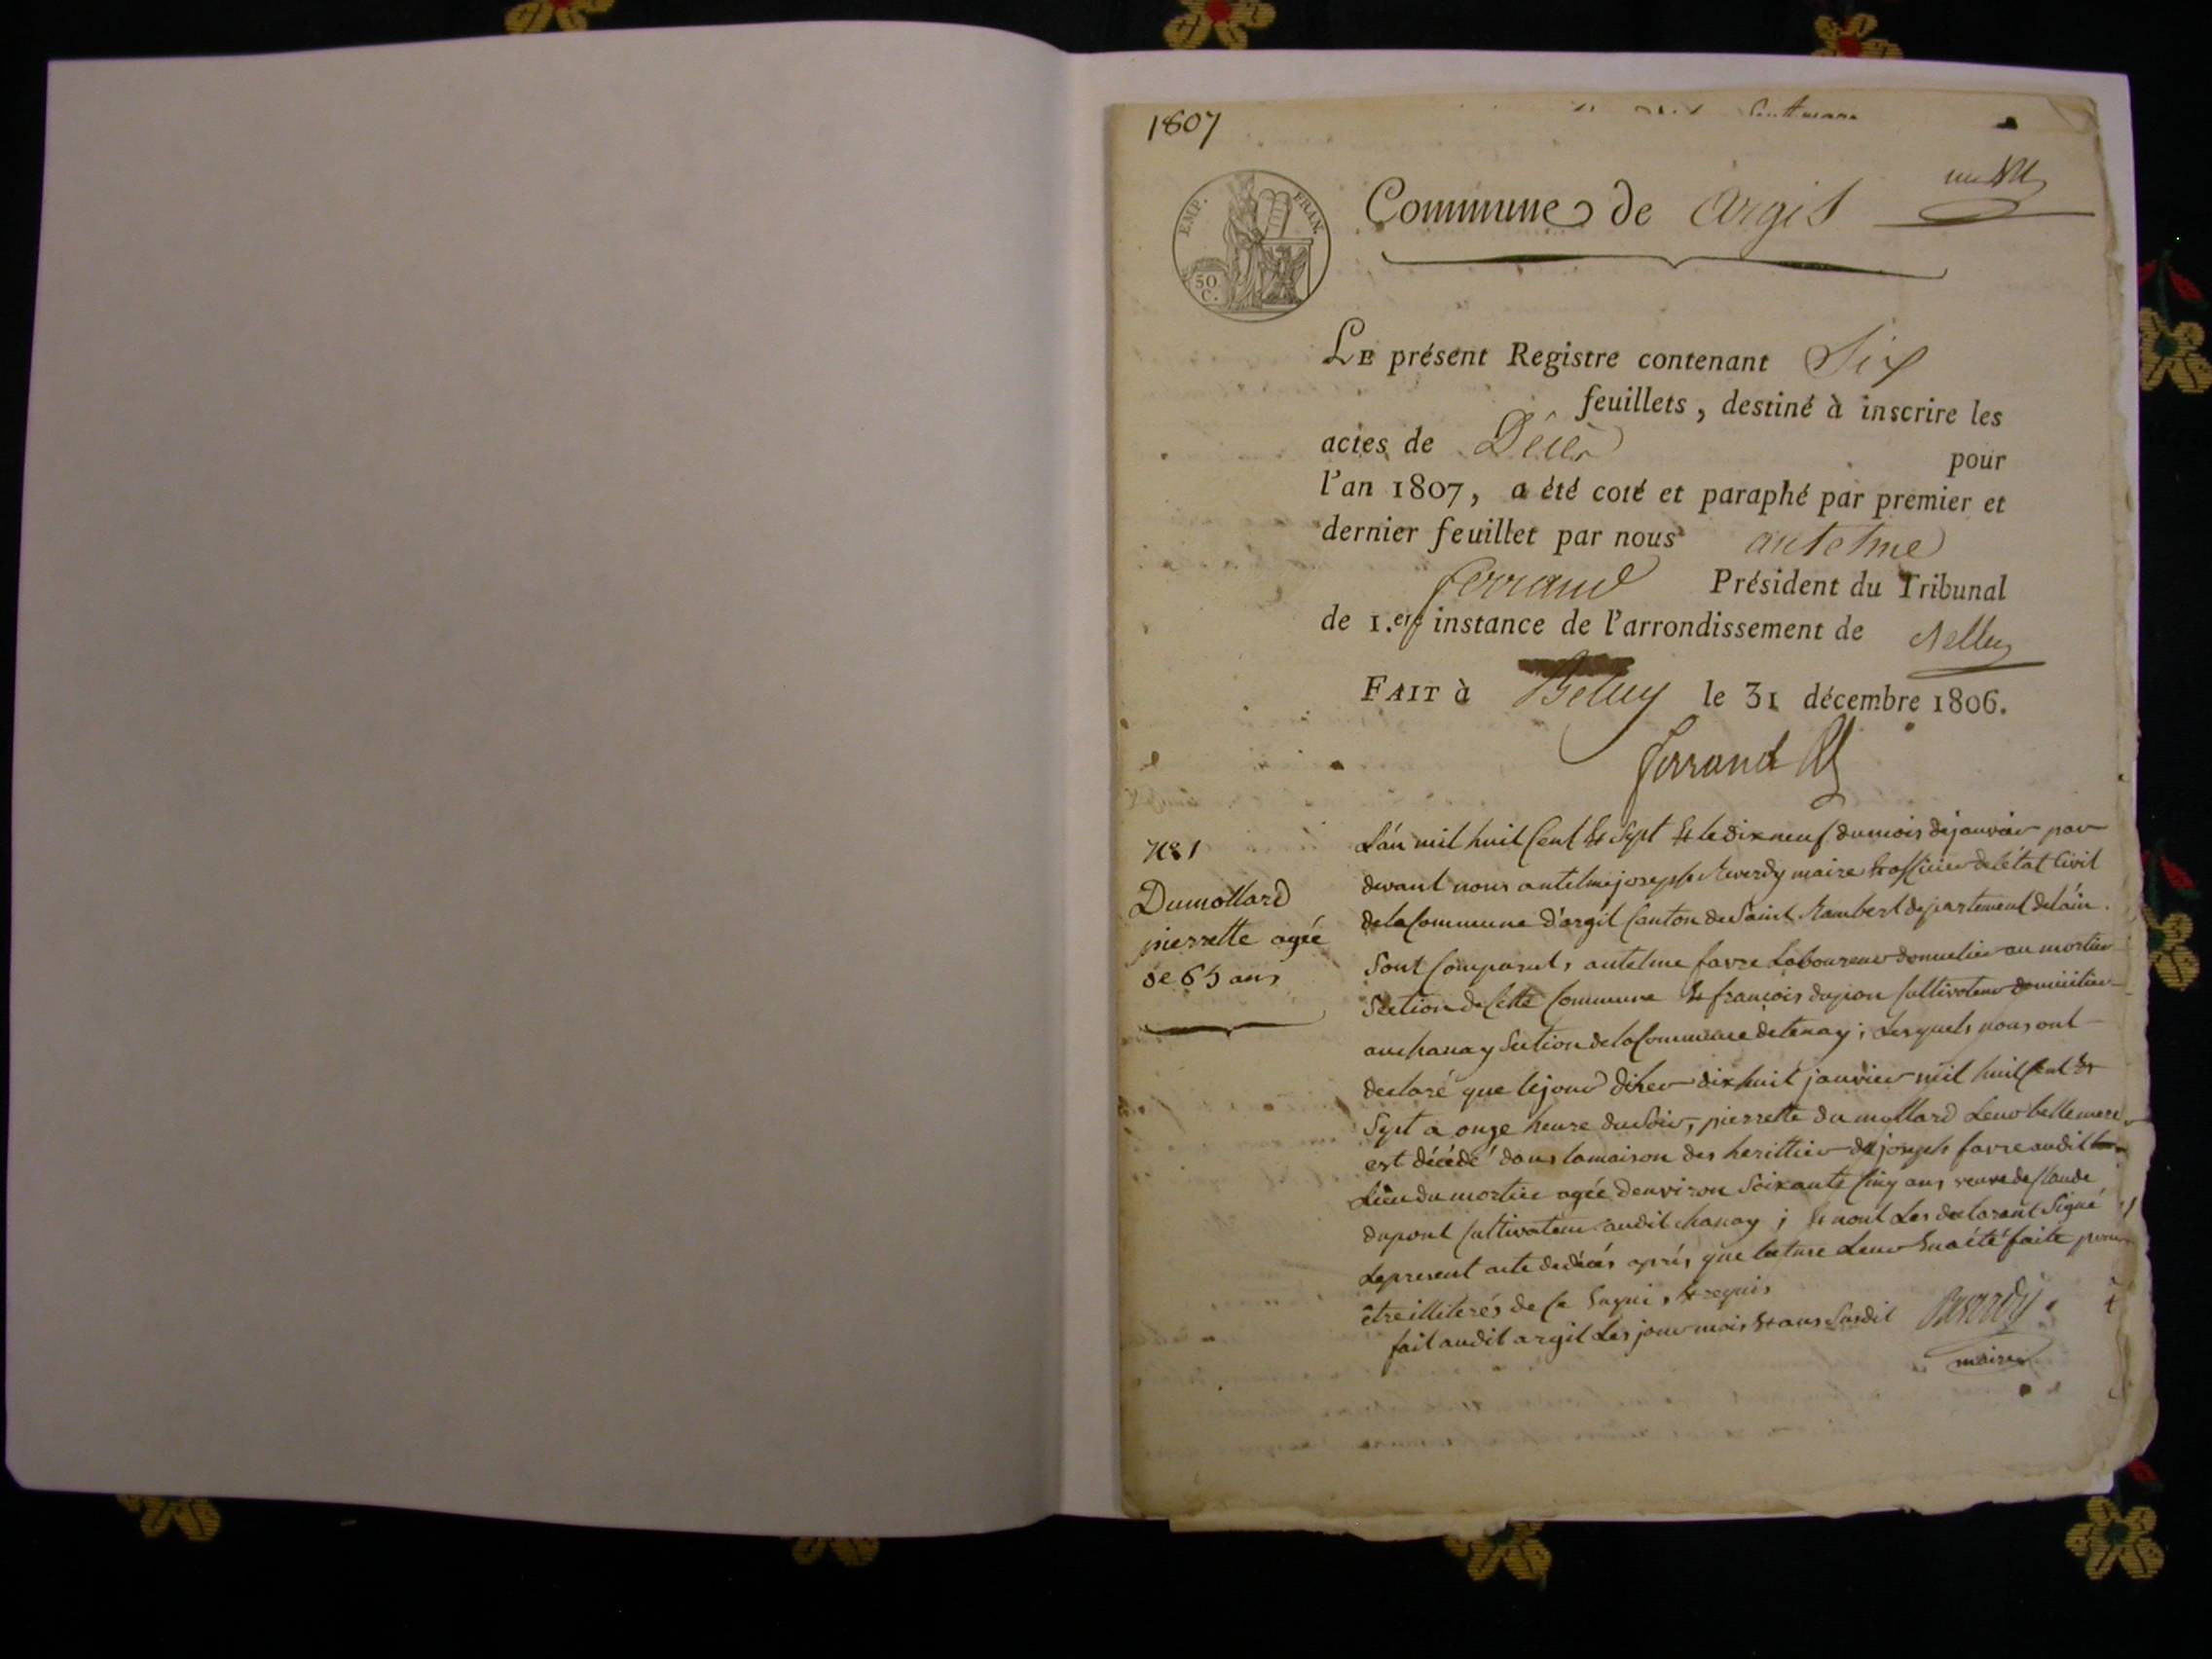 1807
EMP. FRAN.
50
C.
Commune de argis
LE présent Registre contenant Six
feuillets, destiné à inscrire les
actes de Décès
pour
l'an 1807, a été coté et paraphé par premier et
dernier feuillet par nous antelme
ferrand Président du Tribunal
de 1.ere instance de l'arrondissement de Belley
FAIT à Belley le 31 décembre 1806.
ferrand
N° 1
Dumollard
pierrette agée
de 65 ans
L'an mil huit Cent & Sept & le dix neuf du mois de janvier par
devant nous antelme joseph Reverdy maire & officier de l'état Civil
de la Commune d'argil Canton de Saint Rambert departement de l'ain.
Sont Comparuts antelme favre Laboureur domicilié au mortier
Section de Cette Commune & francois dupon Cultivateur domicilié
au chanay Section de la Commune de tenay; Lesquels nous ont
declaré que le jour d'hier dix huit janvier mil huit Cent &
Sept a onze heure du Soir, pierrette du mollard Leur belle mere
est décédé dans la maison des herittier de joseph favre audit
Lieu du mortier agée d'environ Soixante Cinq ans veuve de Claude
dupont Cultivateur audit chanay; & n'ont Les declarant Signé
Le present acte de décés aprés que lecture Leur En a été faite pour
être illiterés de Ce Enquis & requis
fait audit argil Les jour mois & ans Susdit
Reverdy
maire